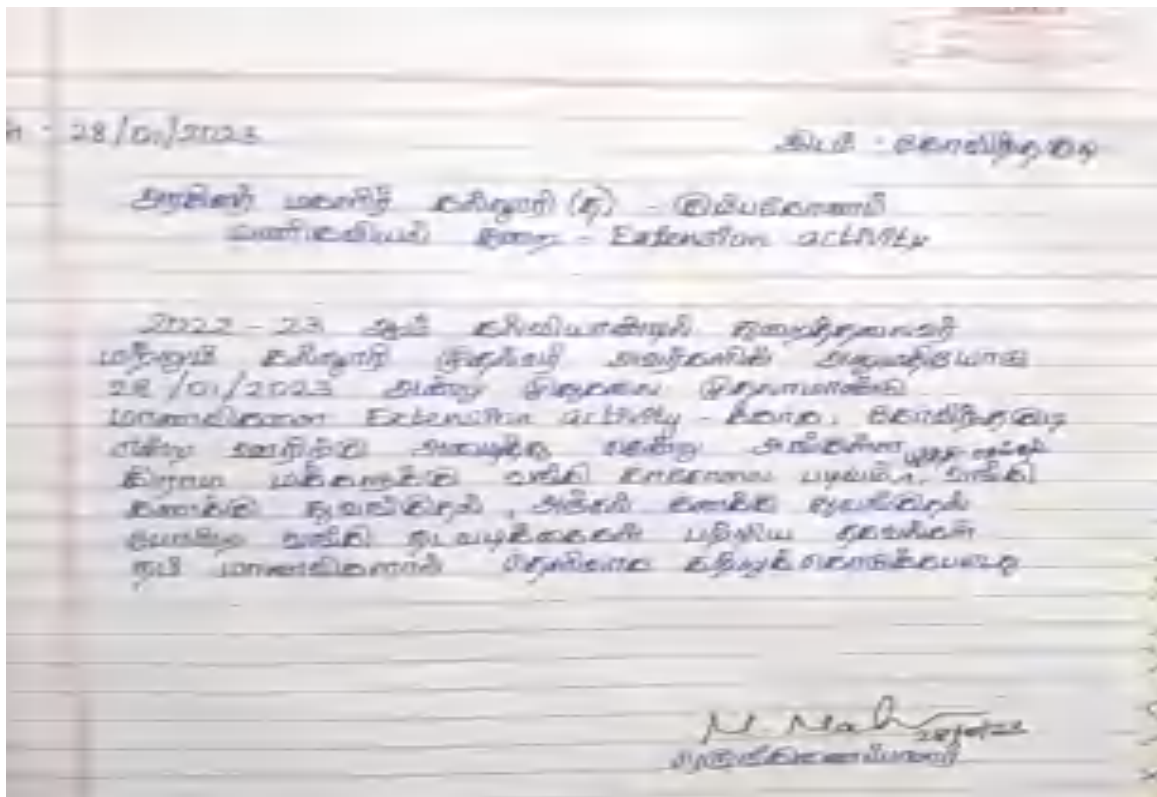 28/01/2023
இடம் : கோவிந்தகுடி
அரசினர் மகளிர் கல்லூரி (த) - கும்பகோணம்
வணிகவியல் துறை - Extension activity
2022 - 23 ஆம் கல்வியாண்டில் துறைத்தலைவர்
மற்றும் கல்லூரி முதல்வர் அவர்களின் அனுமதியோடு
28/01/2023 அன்று முதுகலை முதலாமாண்டு
மாணவிகளை Extension activity - க்காக, கோவிந்தகுடி
என்ற ஊரிற்கு அழைத்து சென்று அங்குள்ள
கிராம மக்களுக்கு வங்கி காசோலை படிவம், வங்கி
கணக்கு துவங்குதல், அஞ்சல் கணக்கு துவங்குதல்
போன்ற வங்கி நடவடிக்கைகள் பற்றிய தகவல்கள்
நம் மாணவிகளால் தெளிவாக கற்றுக்கொடுக்கப்பட்டது